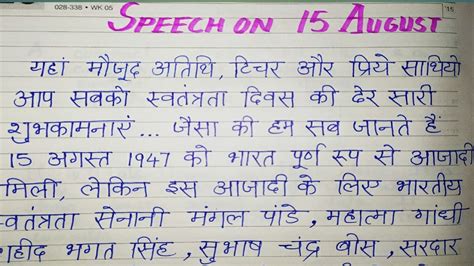 028-338 • WK 05
'15
SPEECH ON 15 AUGUST
यहां मौजूद अतिथि, टिचर और प्रिये साथियो
आप सबको स्वतंत्रता दिवस की ढेर सारी
शुभकामनाएं ... जैसा की हम सब जानते हैं
15 अगस्त 1947 को भारत पूर्ण रुप से आजादी
मिली, लेकिन इस आजादी के लिए भारतीय
स्वतंत्रता सेनानी मंगल पांडे, महात्मा गांधी
हीद भगत सिंह, सुभाष चंद्र बोस, सरदार